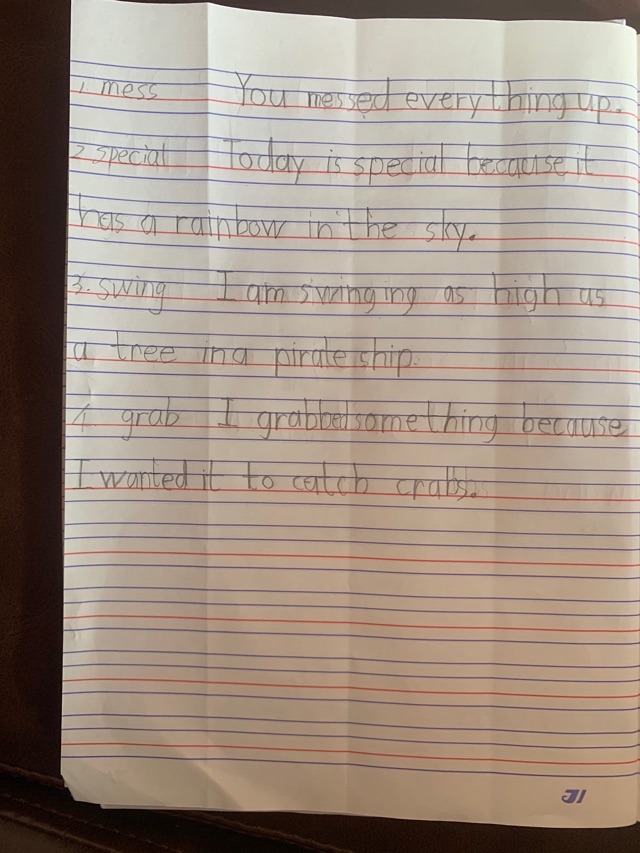 1. mess You messed everything up.
2 special Today is special because it
has a rainbow in the sky.
3. swing I am swinging as high as
a tree in a pirate ship.
4. grab I grabbed something because
I wanted it to catch crabs.